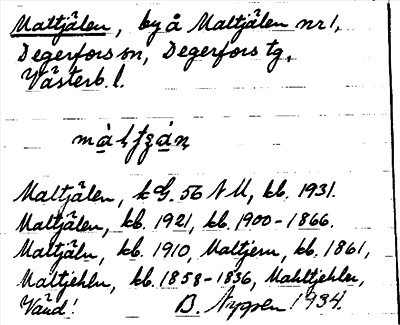 Maltjälen, by å Maltjälen nr 1,
Degerfors sn, Degerfors tg,
Västerb. l.
Maltjälen, k G. 56 NU, kb. 1931.
Maltjälen, kb. 1921, kb. 1900-1866.
Maltjäln, kb. 1910, Maltjern, kb. 1861,
Maltjehln, kb. 1858-1836, Mahltjehln,
Vänd! B. Nygren 1934.